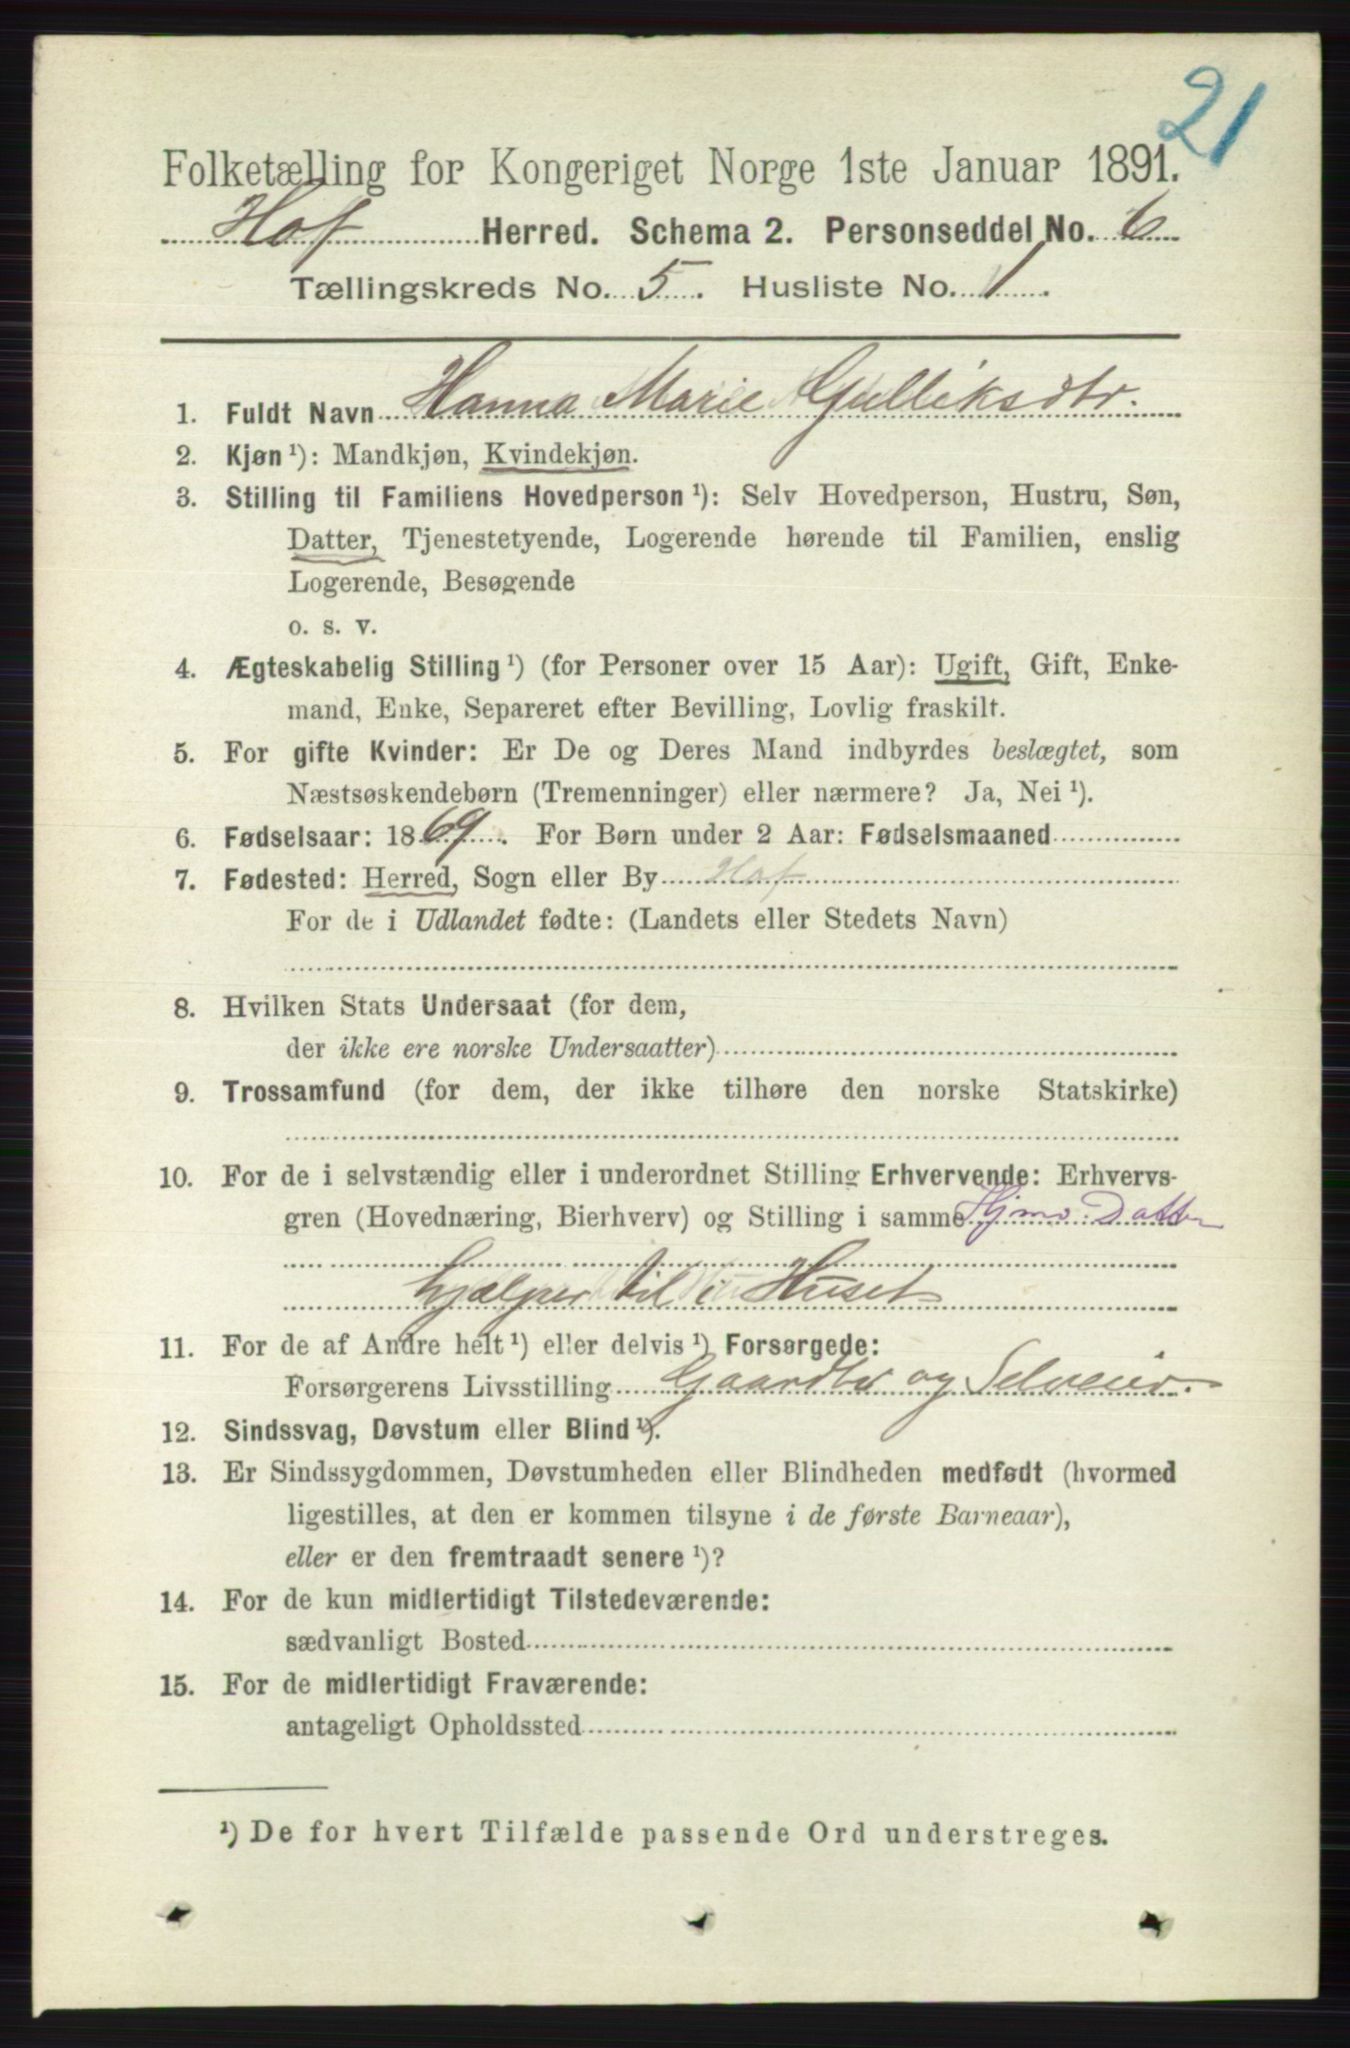 21
Folketælling for Kongeriget Norge 1ste Januar 1891.
Hof Herred. Schema 2. Personseddel No. 6
Tællingskreds No. 5. Husliste No. 1.
1. Fuldt Navn Hanna Marie Gulliksdtr.
2. Kjøn¹): Mandkjøn, Kvindekjøn.
3. Stilling til Familiens Hovedperson¹): Selv Hovedperson, Hustru, Søn,
Datter, Tjenestetyende, Logerende hørende til Familien, enslig
Logerende, Besøgende
o. s. v.
4. Ægteskabelig Stilling¹) (for Personer over 15 Aar): Ugift, Gift, Enke-
mand, Enke, Separeret efter Bevilling, Lovlig fraskilt.
5. For gifte Kvinder: Er De og Deres Mand indbyrdes beslægtet, som
Næstsøskendebørn (Tremenninger) eller nærmere? Ja, Nei¹).
6. Fødselsaar: 1869. For Børn under 2 Aar: Fødselsmaaned
7. Fødested: Herred, Sogn eller By Hof
For de i Udlandet fødte: (Landets eller Stedets Navn)
8. Hvilken Stats Undersaat (for dem,
der ikke ere norske Undersaatter)
9. Trossamfund (for dem, der ikke tilhøre den norske Statskirke)
10. For de i selvstændig eller i underordnet Stilling Erhvervende: Erhvervs-
gren (Hovednæring, Bierhverv) og Stilling i samme Hjmv. Datter
hjælper til i Huset
11. For de af Andre helt¹) eller delvis¹) Forsørgede:
Forsørgerens Livsstilling Gaardbr og Selveier.
12. Sindssvag, Døvstum eller Blind¹).
13. Er Sindssygdommen, Døvstumheden eller Blindheden medfødt (hvormed
ligestilles, at den er kommen tilsyne i de første Barneaar),
eller er den fremtraadt senere¹)?
14. For de kun midlertidigt Tilstedeværende:
sædvanligt Bosted
15. For de midlertidigt Fraværende:
antageligt Opholdssted
¹) De for hvert Tilfælde passende Ord understreges.